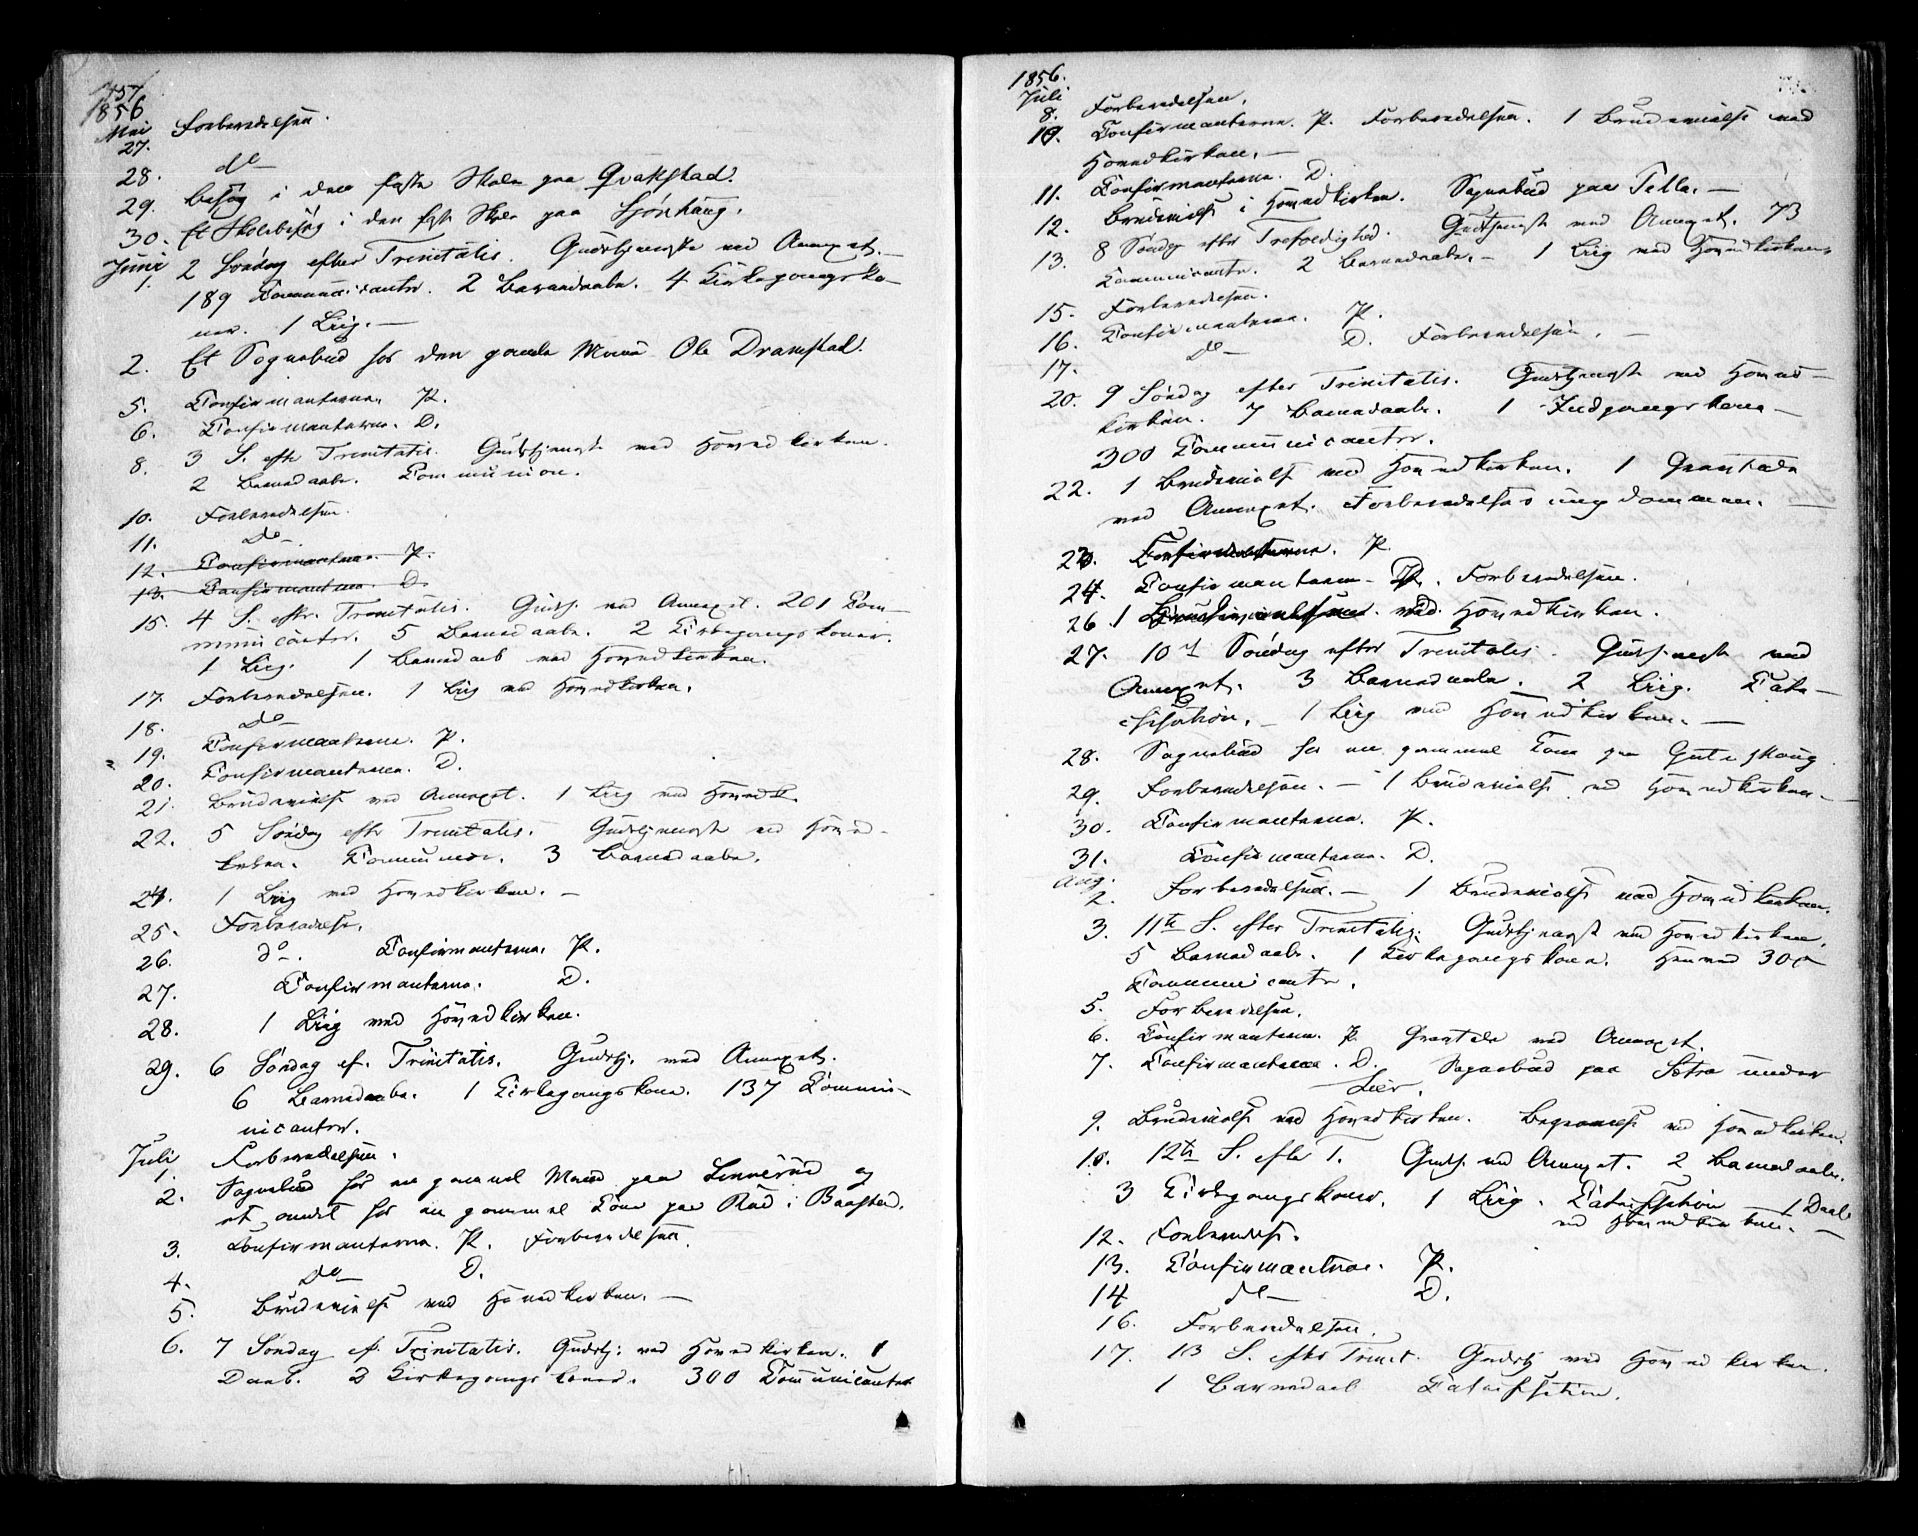 457
1856
Mai
27. Forberedelsen.
28. do
29. Besøg i den faste Skole paa Qvakstad.
30. Et Skolebesøg i den faste Skole paa Sjønhaug.
Juni
1. 2 Søndag efter Trinitatis. Gudstjeneste ved Annexet. —
189 Communicanter. 2 Barnedaabe. 4 Kirkegangsko-
ner. 1 Liig. —
2. Et Sognebud hos den gamle Mand Ole Dramstad.
5. Confirmanterne P.
6. Confirmanterne. D.
8. 3 S. efter Trinitatis. Gudstjeneste ved Hovedkirken.
2 Barnedaabe. Communion.
10. Forberedelsen.
11. do
12. Confirmanterne. P.
13. Confirmanterne. D.
15. 4 S. eftr. Trinitatis. Gudstj. ved Annexet. 201 Com-
municanter. 5 Barnedaabe. 2 Kirkegangskoner.
1 Liig. 1 Barnedaab ved Hovedkirken.
17. Forberedelsen. 1 Liig ved Hovedkirken.
18. do
19. Confirmanterne. P.
20. Confirmanterne. D.
21. Brudevielse ved Annexet. 1 Liig ved Hovedk.
22. 5 Søndag efter Trinitatis. Gudstjeneste ved Hoved-
kirken. Communion. 3 Barnedaabe.
24. 1 Liig ved Hovedkirken. —
25. Forberedelse.
26. do. Confirmanterne. P.
27. Confirmanterne. D.
28. 1 Liig ved Hovedkirken.
29. 6 Søndag ef. Trinitatis. Gudstj. ved Annexet.
6 Barnedaabe. 1 Kirkegangskone. 137 Commu-
nicanter.
Juli
1. Forberedelsen.
2. Sognebud hos en gammel Mand paa Linnerud og
et andet hos en gammel Kone paa Rud i Baastad.
3. Confirmanterne. P. Forberedelsen.
4. do D.
5. Brudevielse ved Hovedkirken. —
6. 7 Søndag ef. Trinitatis. Gudstj: ved Hovedkirken. 1
Daab. 2 Kirkegangskoner. 300 Communicanter
1856.
Juli
8. Forberedelsen.
10. Confirmanterne. P. Forberedelsen. 1 Brudevielse ved
Hovedkirken. —
11. Confirmanterne. D.
12. Brudevielse i Hovedkirken. Sognebud paa Tella. —
13. 8 Søndag efter Trefoldighed. Gudstjeneste ved Annexet. 73
Communicanter. 2 Barnedaabe. — 1 Liig ved Hovedkirken.
15. Forberedelsen.
16. Confirmanterne. P.
17. do D. Forberedelsen. —
20. 9 Søndag efter Trinitatis. Gudstjeneste ved Hoved-
kirken. 7 Barnedaabe. 1 Indgangskone —
300 Communicanter.
22. 1 Brudevielse ved Hovedkirken. 1 Grantale
ved Annexet. Forberedelsesungdommen.
23. Confirmanterne. P
24. Confirmanterne D. Forberedelsen.
26. 1 Brudevielse ved Hovedkirken.
27. 10de Søndag efter Trinitatis. Gudstjeneste ved
Annexet. 3 Barnedaabe. 2 Liig. Cate-
chisation. — 1 Liig ved Hovedkirken. —
28. Sognebud hos en gammel Kone paa
29. Forberedelsen. — 1 Brudevielse ved Hovedkirken —
30. Confirmanterne. P.
31. Confirmanterne. D.
Aug.
2. Forberedelsen. — 1 Brudevielse ved Hovedkirken.
3. 11te S. efter Trinitatis. Gudstjeneste ved Hovedkirken.
5 Barnedaabe. 1 Kirkegangskone. Henved 300
Communicanter.
5. Forberedelsen.
6. Confirmanterne. P. Grantale ved Annexet.
7. Confirmanterne. D. Sognebud paa Setra under
Lier.
9. Brudevielse ved Hovedkirken. Begravelse ved Hovedkirken.
10. 12te S. efter T. Gudstj. ved Annexet. 2 Barnedaabe.
3 Kirkegangskoner. 1 Liig. Catechisation — 1 Daab
ved Hovedkirken. —
12. Forberedelse.
13. Confirmanterne. P.
14 do D.
16. Forberedelsen.
17. 13 S. efter Trinit. Gudstj ved Hovedkirken.
1 Barnedaab Catechisation.